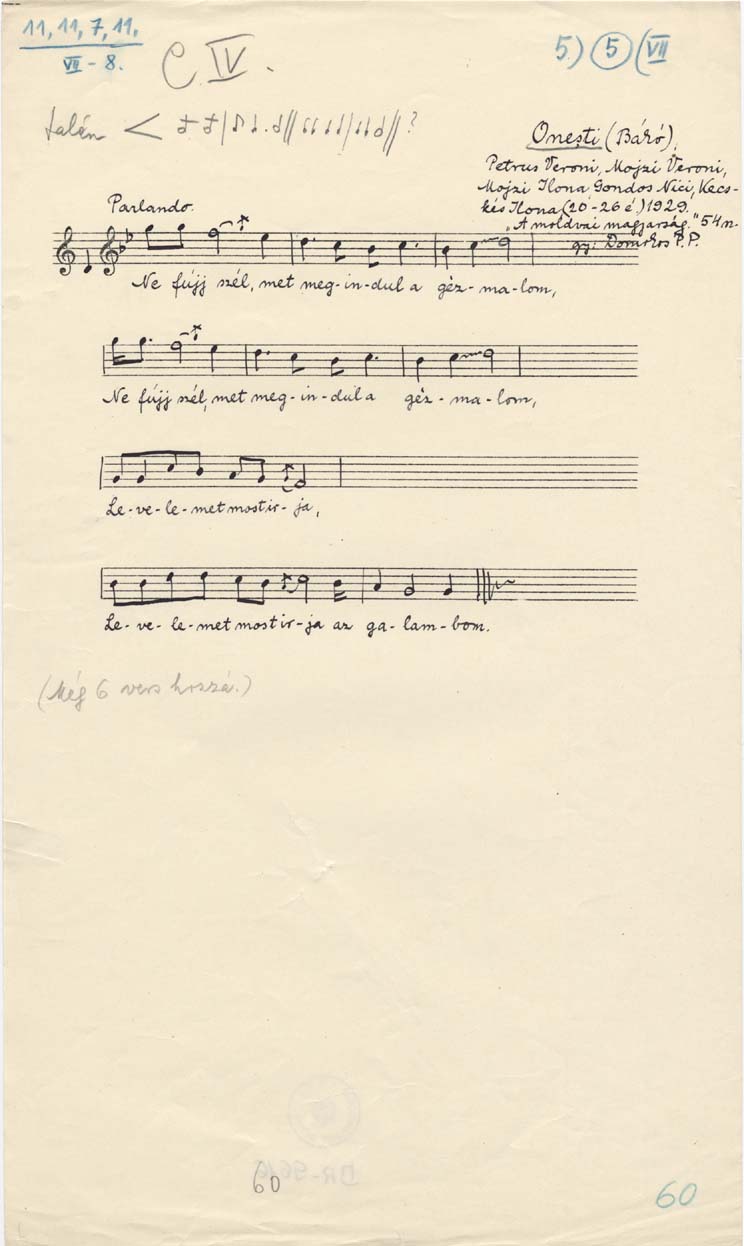 11, 11, 7, 11.
VII - 8.
C. IV.
5.) 5 (VII
talán < ?
Onesti (Báró),
Petrus Veroni, Mojzi Veroni,
Mojzi Ilona Gondos Nici, Kecs-
kés Ilona (20-26 é.) 1929.
"A moldvai magyarság." 54 n-
gy: Domokos P. P.
Parlando.
Ne fújj szél, met meg-in-dul a géz-ma-lom,
Ne fújj szél, met meg-in-dul a géz-ma-lom,
Le-ve-le-met most ir-ja,
Le-ve-le-met most ir-ja az ga-lam-bom.
(Még 6 vers hozzá.)
60
60